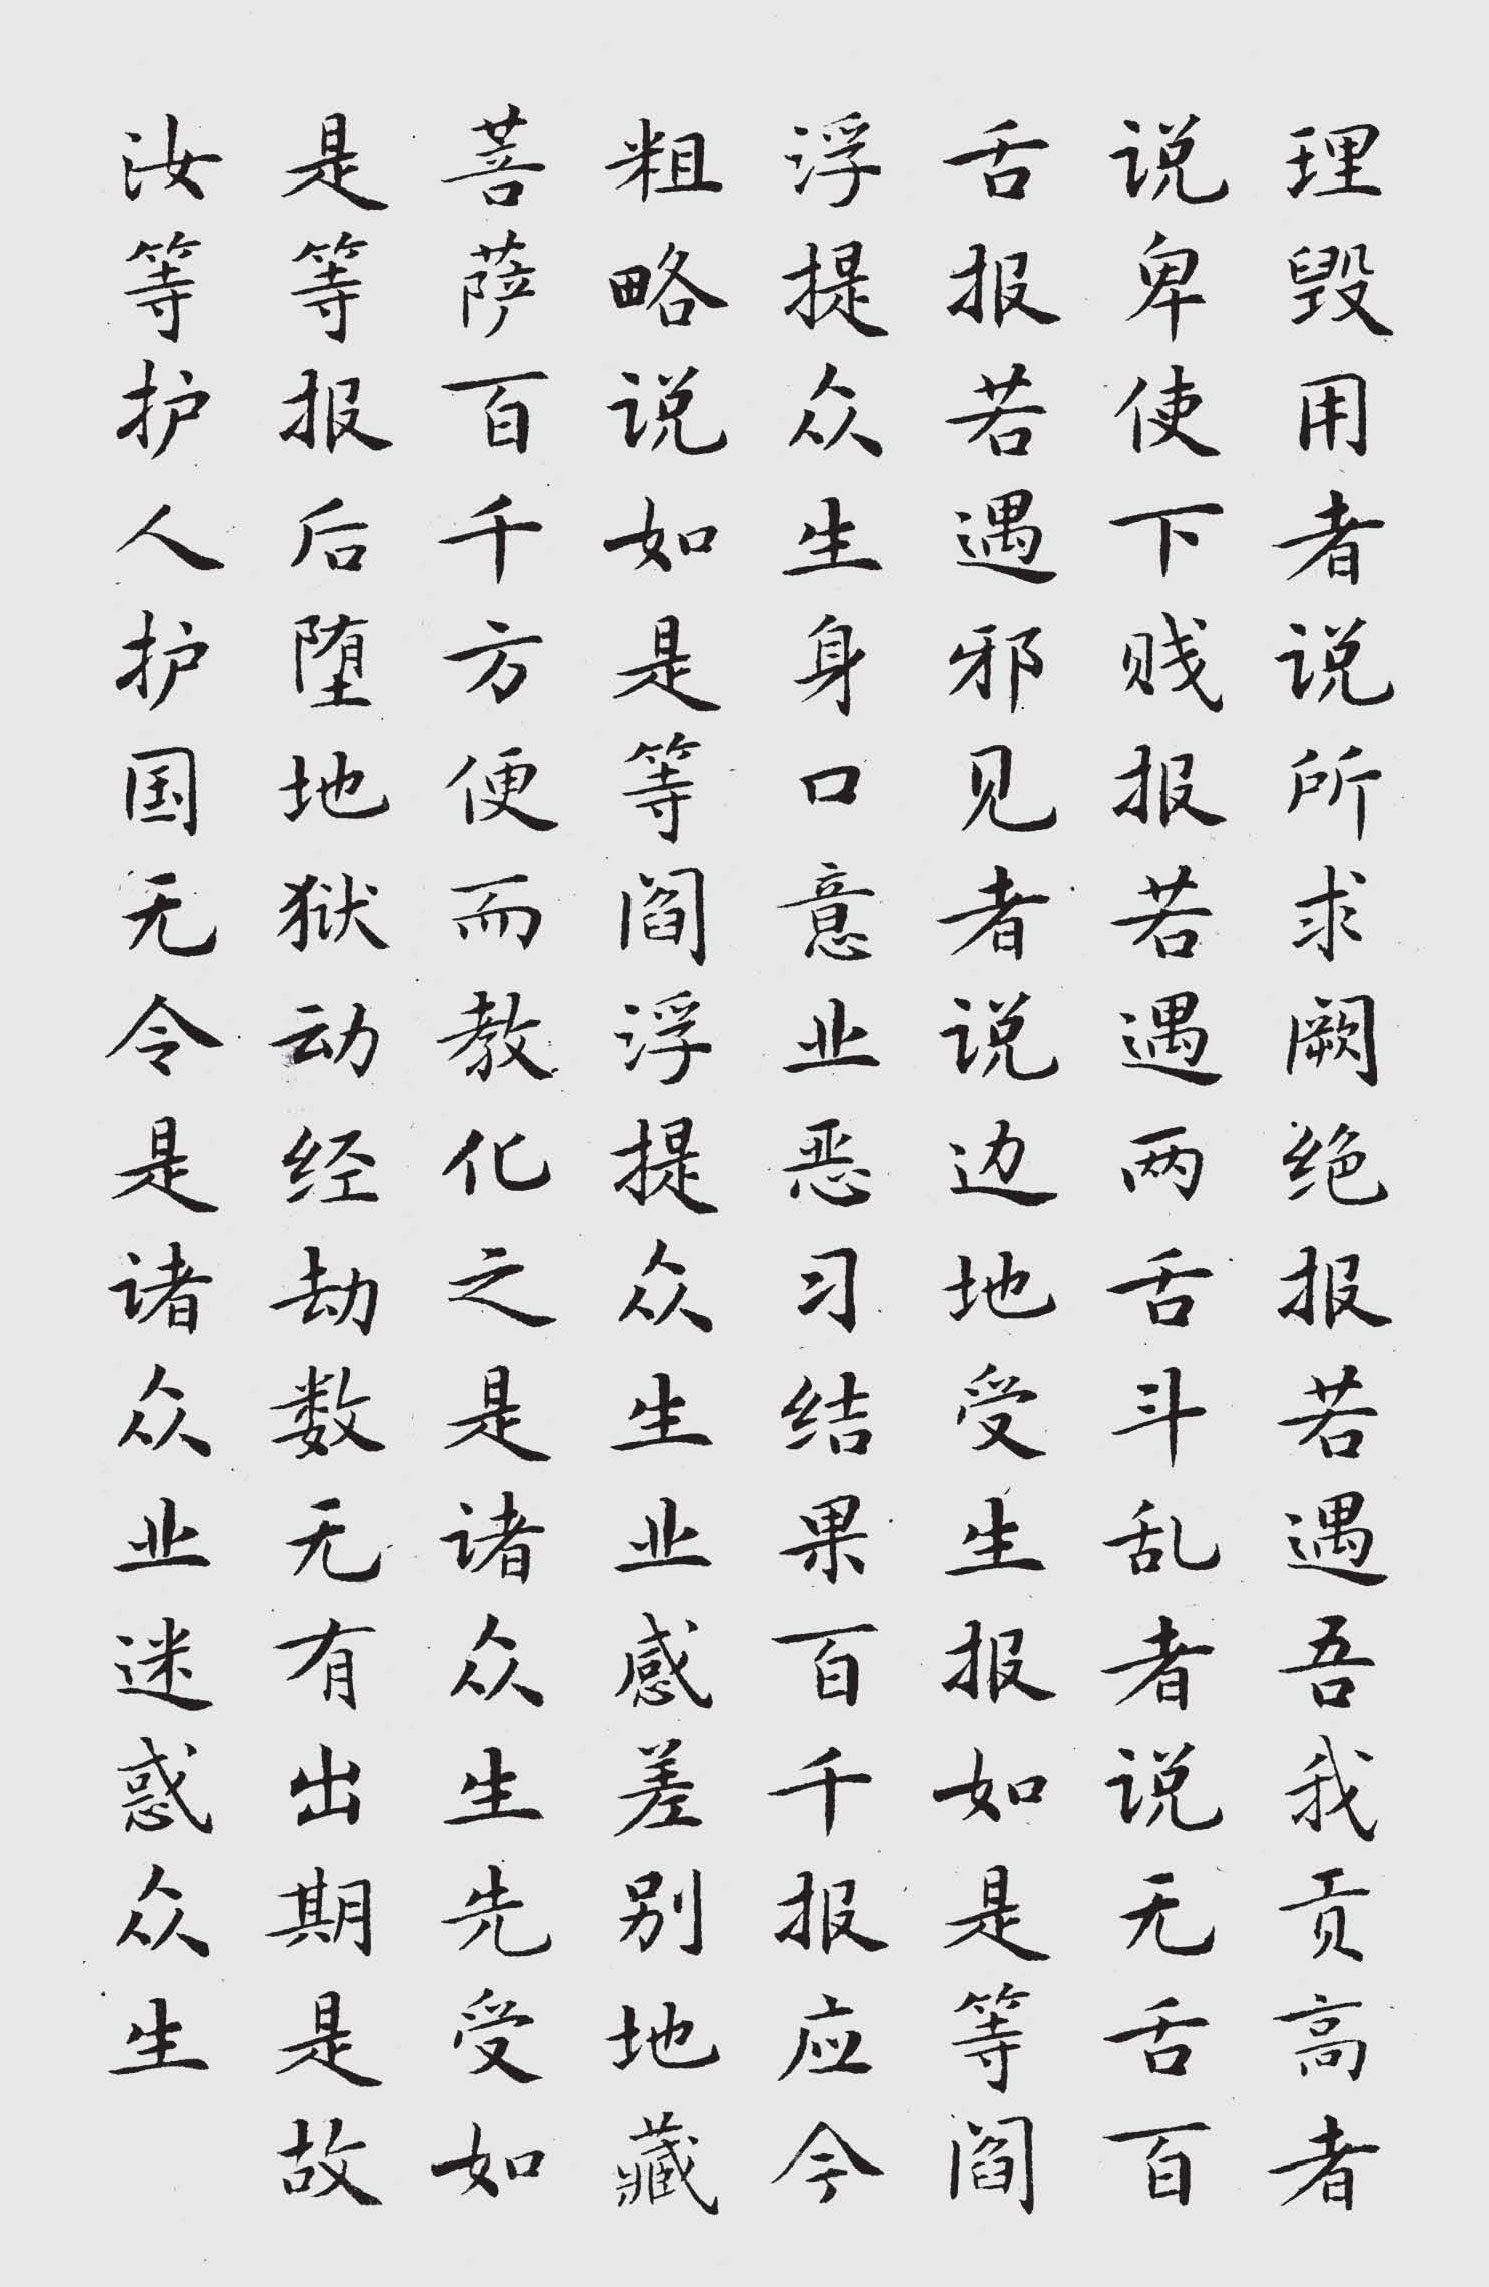 理毁用者说所求阙绝报若遇吾我贡高者
说卑使下贱报若遇两舌斗乱者说无舌百
舌报若遇邪见者说边地受生报如是等阎
浮提众生身口意业恶习结果百千报应今
粗略说如是等阎浮提众生业感差别地藏
菩萨百千方便而教化之是诸众生先受如
是等报后堕地狱动经劫数无有出期是故
汝等护人护国无令是诸众业迷惑众生